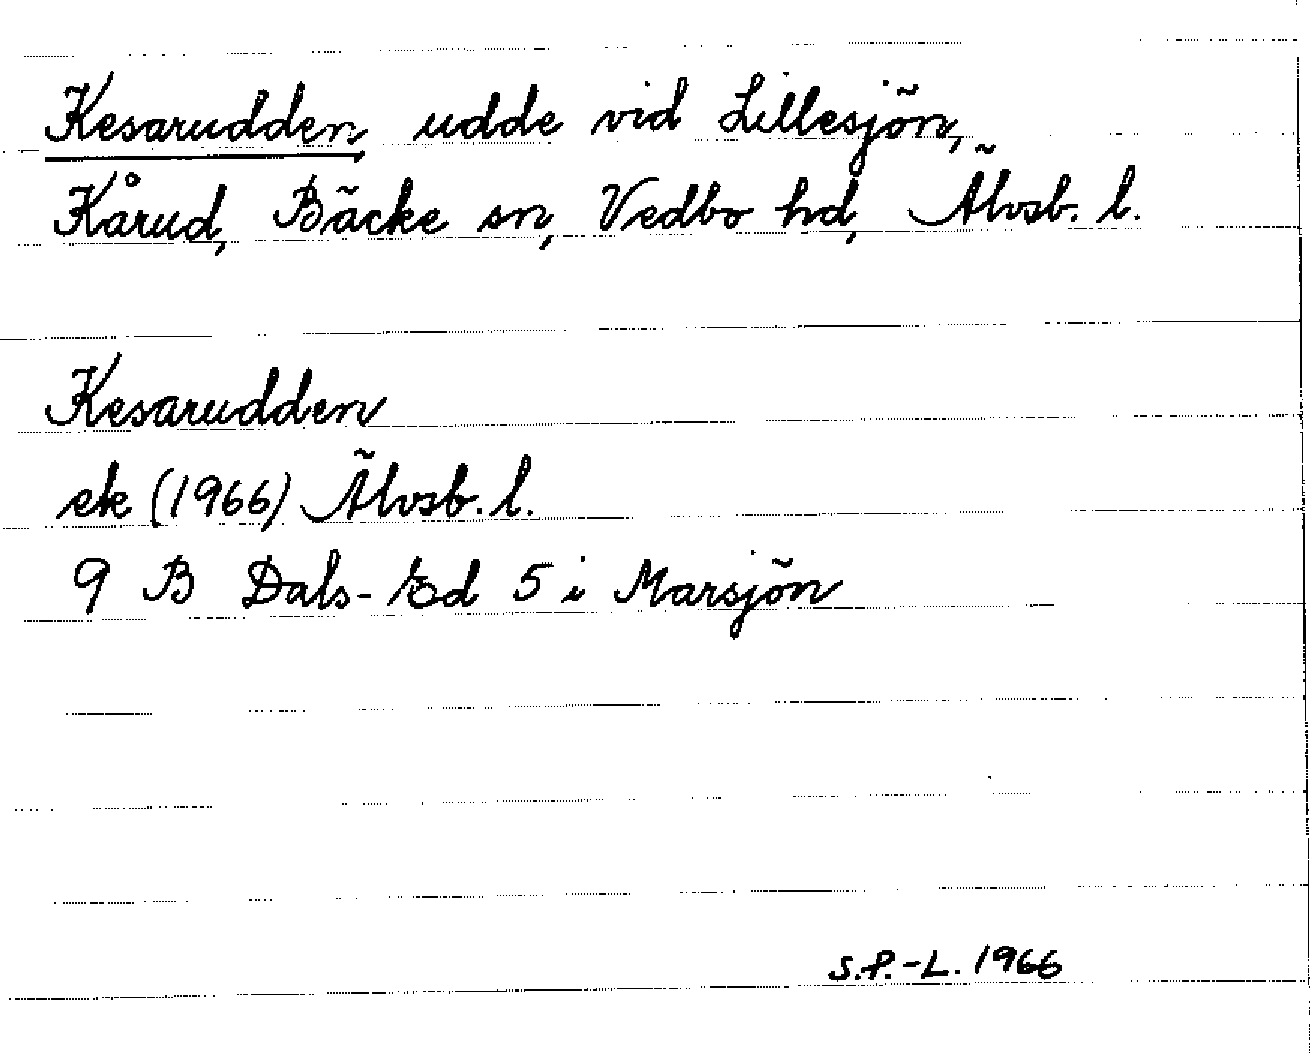 Kesarudden, udde vid Lillesjön,
Kårud, Bäcke sn, Vedbo hd, Älvsb. l.
Kesarudden
ek (1966) Älvsb. l.
9 B Dals-Ed 5 i Marsjön
S.P.-L. 1966